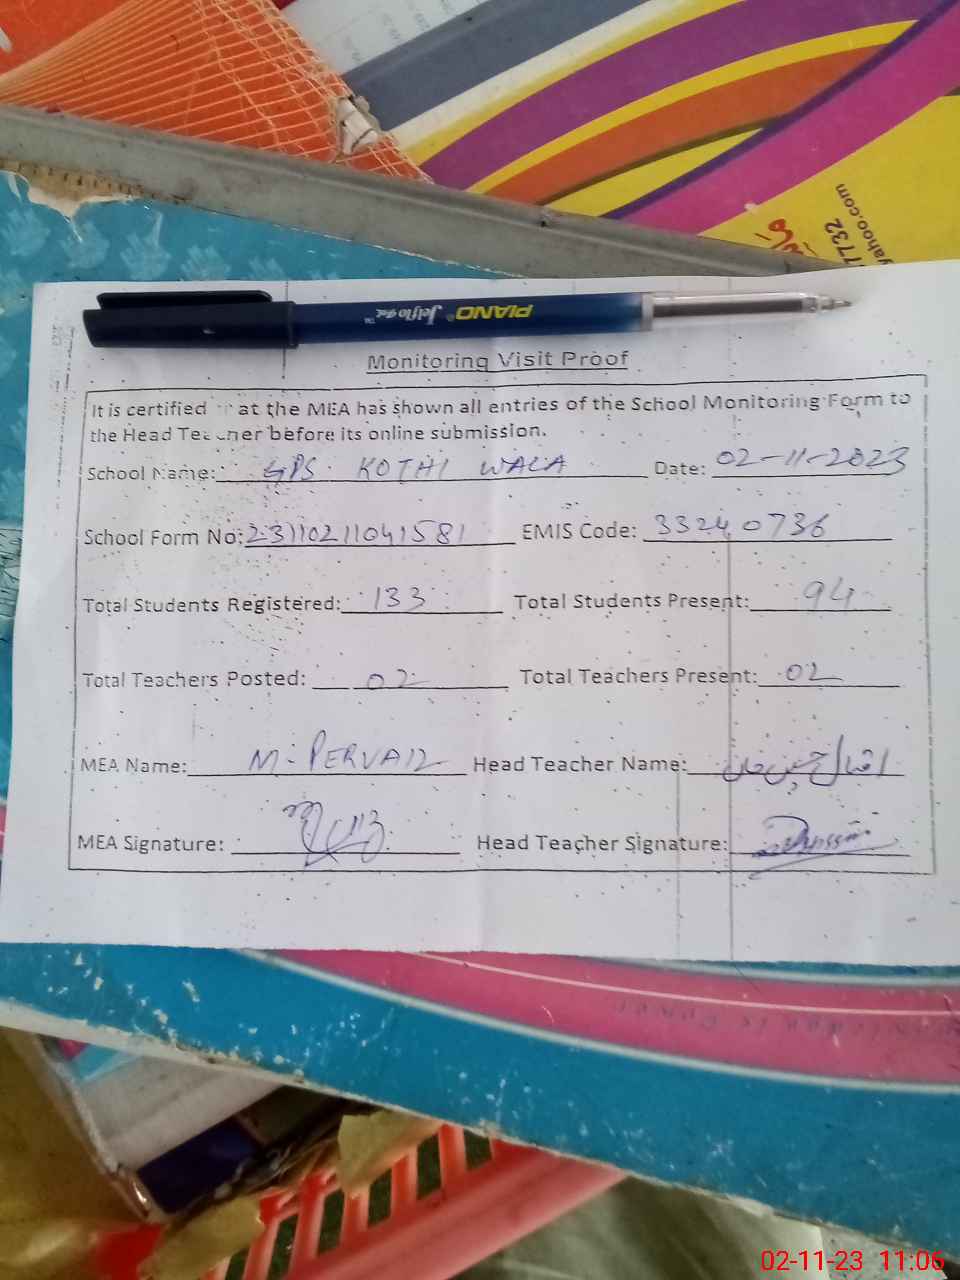 7732
yahoo.com
PIANO® Jelflo Gel ™
Monitoring Visit Proof
It is certified at the MEA has shown all entries of the School Monitoring Form to
the Head Teacher before its online submission.
School Name: GPS KOTHI WALA Date: 02-11-2023
School Form No: 23110211041581 EMIS Code: 33240736
Total Students Registered: 133 Total Students Present: 94
Total Teachers Posted: 02 Total Teachers Present: 02
MEA Name: M. PERVAIZ Head Teacher Name: اقبال حسین خان
MEA Signature: Head Teacher Signature:
02-11-23 11:06